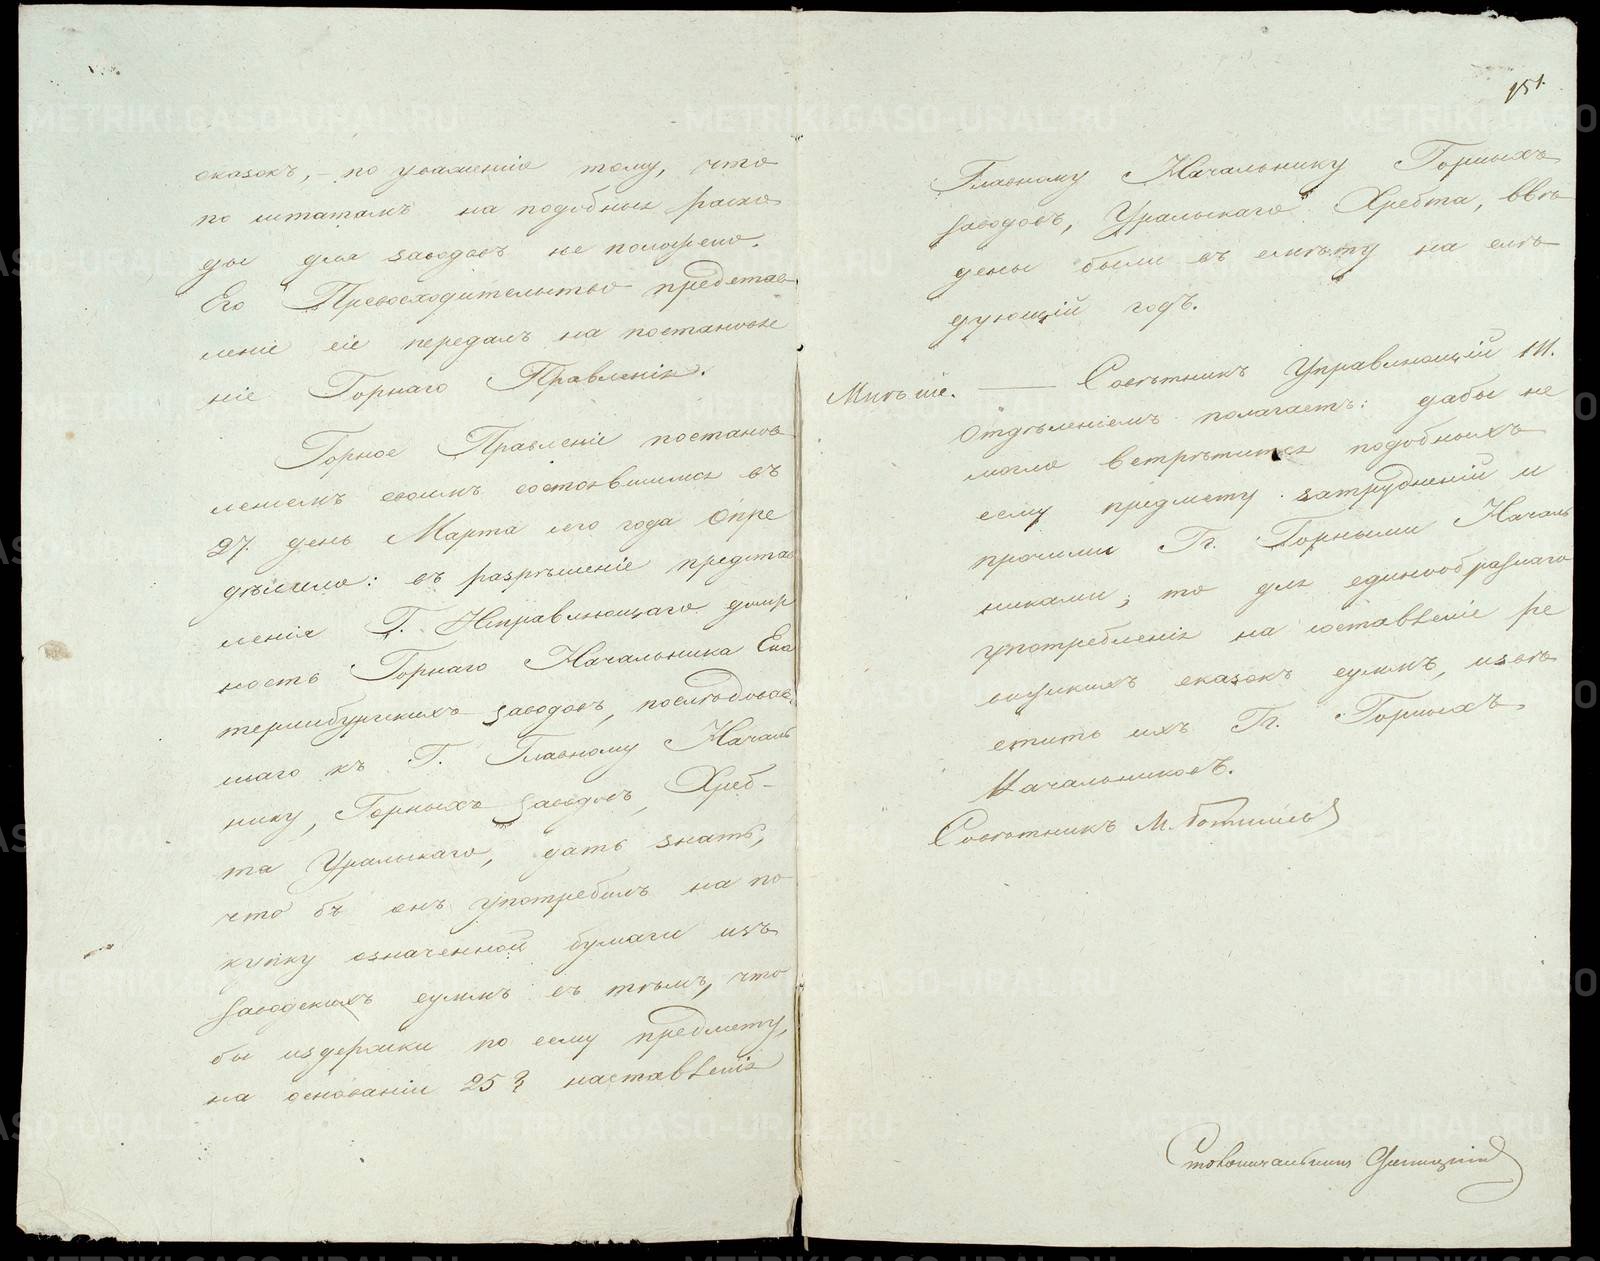 сказокъ, – по уваженію тому, что
по штатамъ на подобныя расхо
ды для заводовъ не положено.
Его Превосходительство представ
леніе сіе передалъ на постановле
ніе Горнаго Правленія.
Горное Правленіе постанов
леніемъ своимъ состоявшимся въ
27. день Марта сего года опре
дѣлило: въ разрѣшеніе представ
ленія Г. Исправляющаго долж
ность Горнаго Начальника Ека
теринбургскихъ заводовъ, послѣдовав
шаго къ Г. Главному Началь
нику, Горныхъ заводовъ, Хреб-
та Уральскаго, дать знать,
что бъ онъ употребилъ на по
купку означенной бумаги изъ
заводскихъ суммъ съ тѣмъ, что
бы издержки по сему предмету,
на основаніи 25 § наставленія
151.
Главному Начальнику Горныхъ
заводовъ, Уральскаго Хребта, ввѣ
дены были въ смѣту на слѣ
дующій годъ.
Мнѣніе. — Совѣтникъ Управляющій III.
Отдѣленіемъ полагаетъ: дабы не
могло встрѣтится подобныхъ
сему предмету затрудненій и
прочими Гг. Горными Началь
никами; то для единообразнаго
употребленія на составленіе ре
визскихъ сказокъ суммъ, извѣ
стить ихъ Гг. Горныхъ
Начальниковъ.
Совѣтникъ М.
Столоначальникъ
METRIKI.GASO-URAL.RU